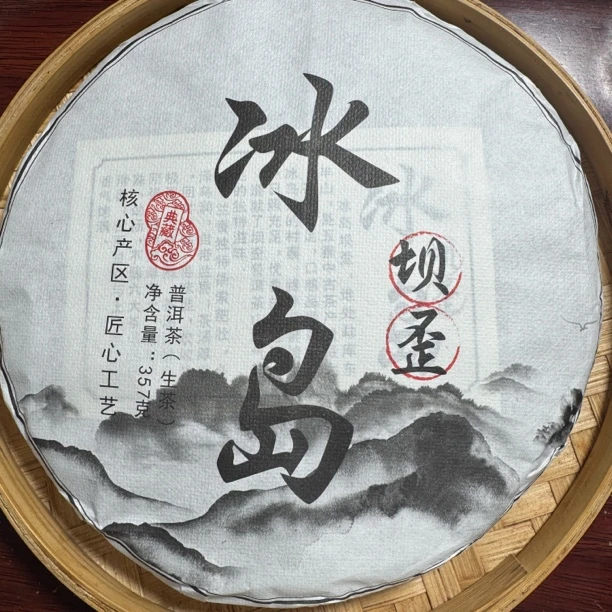 冰岛
坝歪
典藏
核心产区·匠心工艺
普洱茶（生茶）
净含量：357克